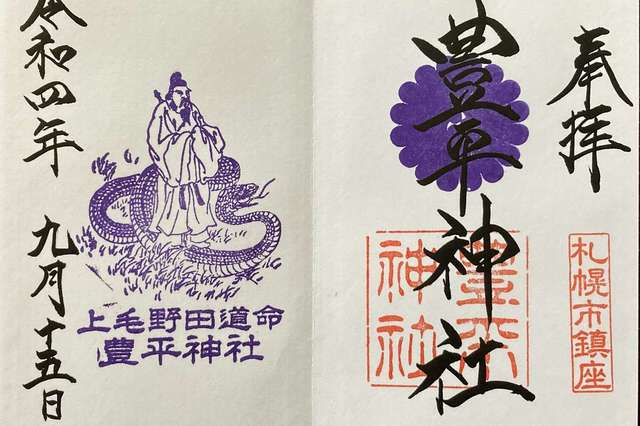 奉拝
豊平神社
豊平
神社
札幌市鎮座
上毛野田道命
豊平神社
令和四年
九月十五日